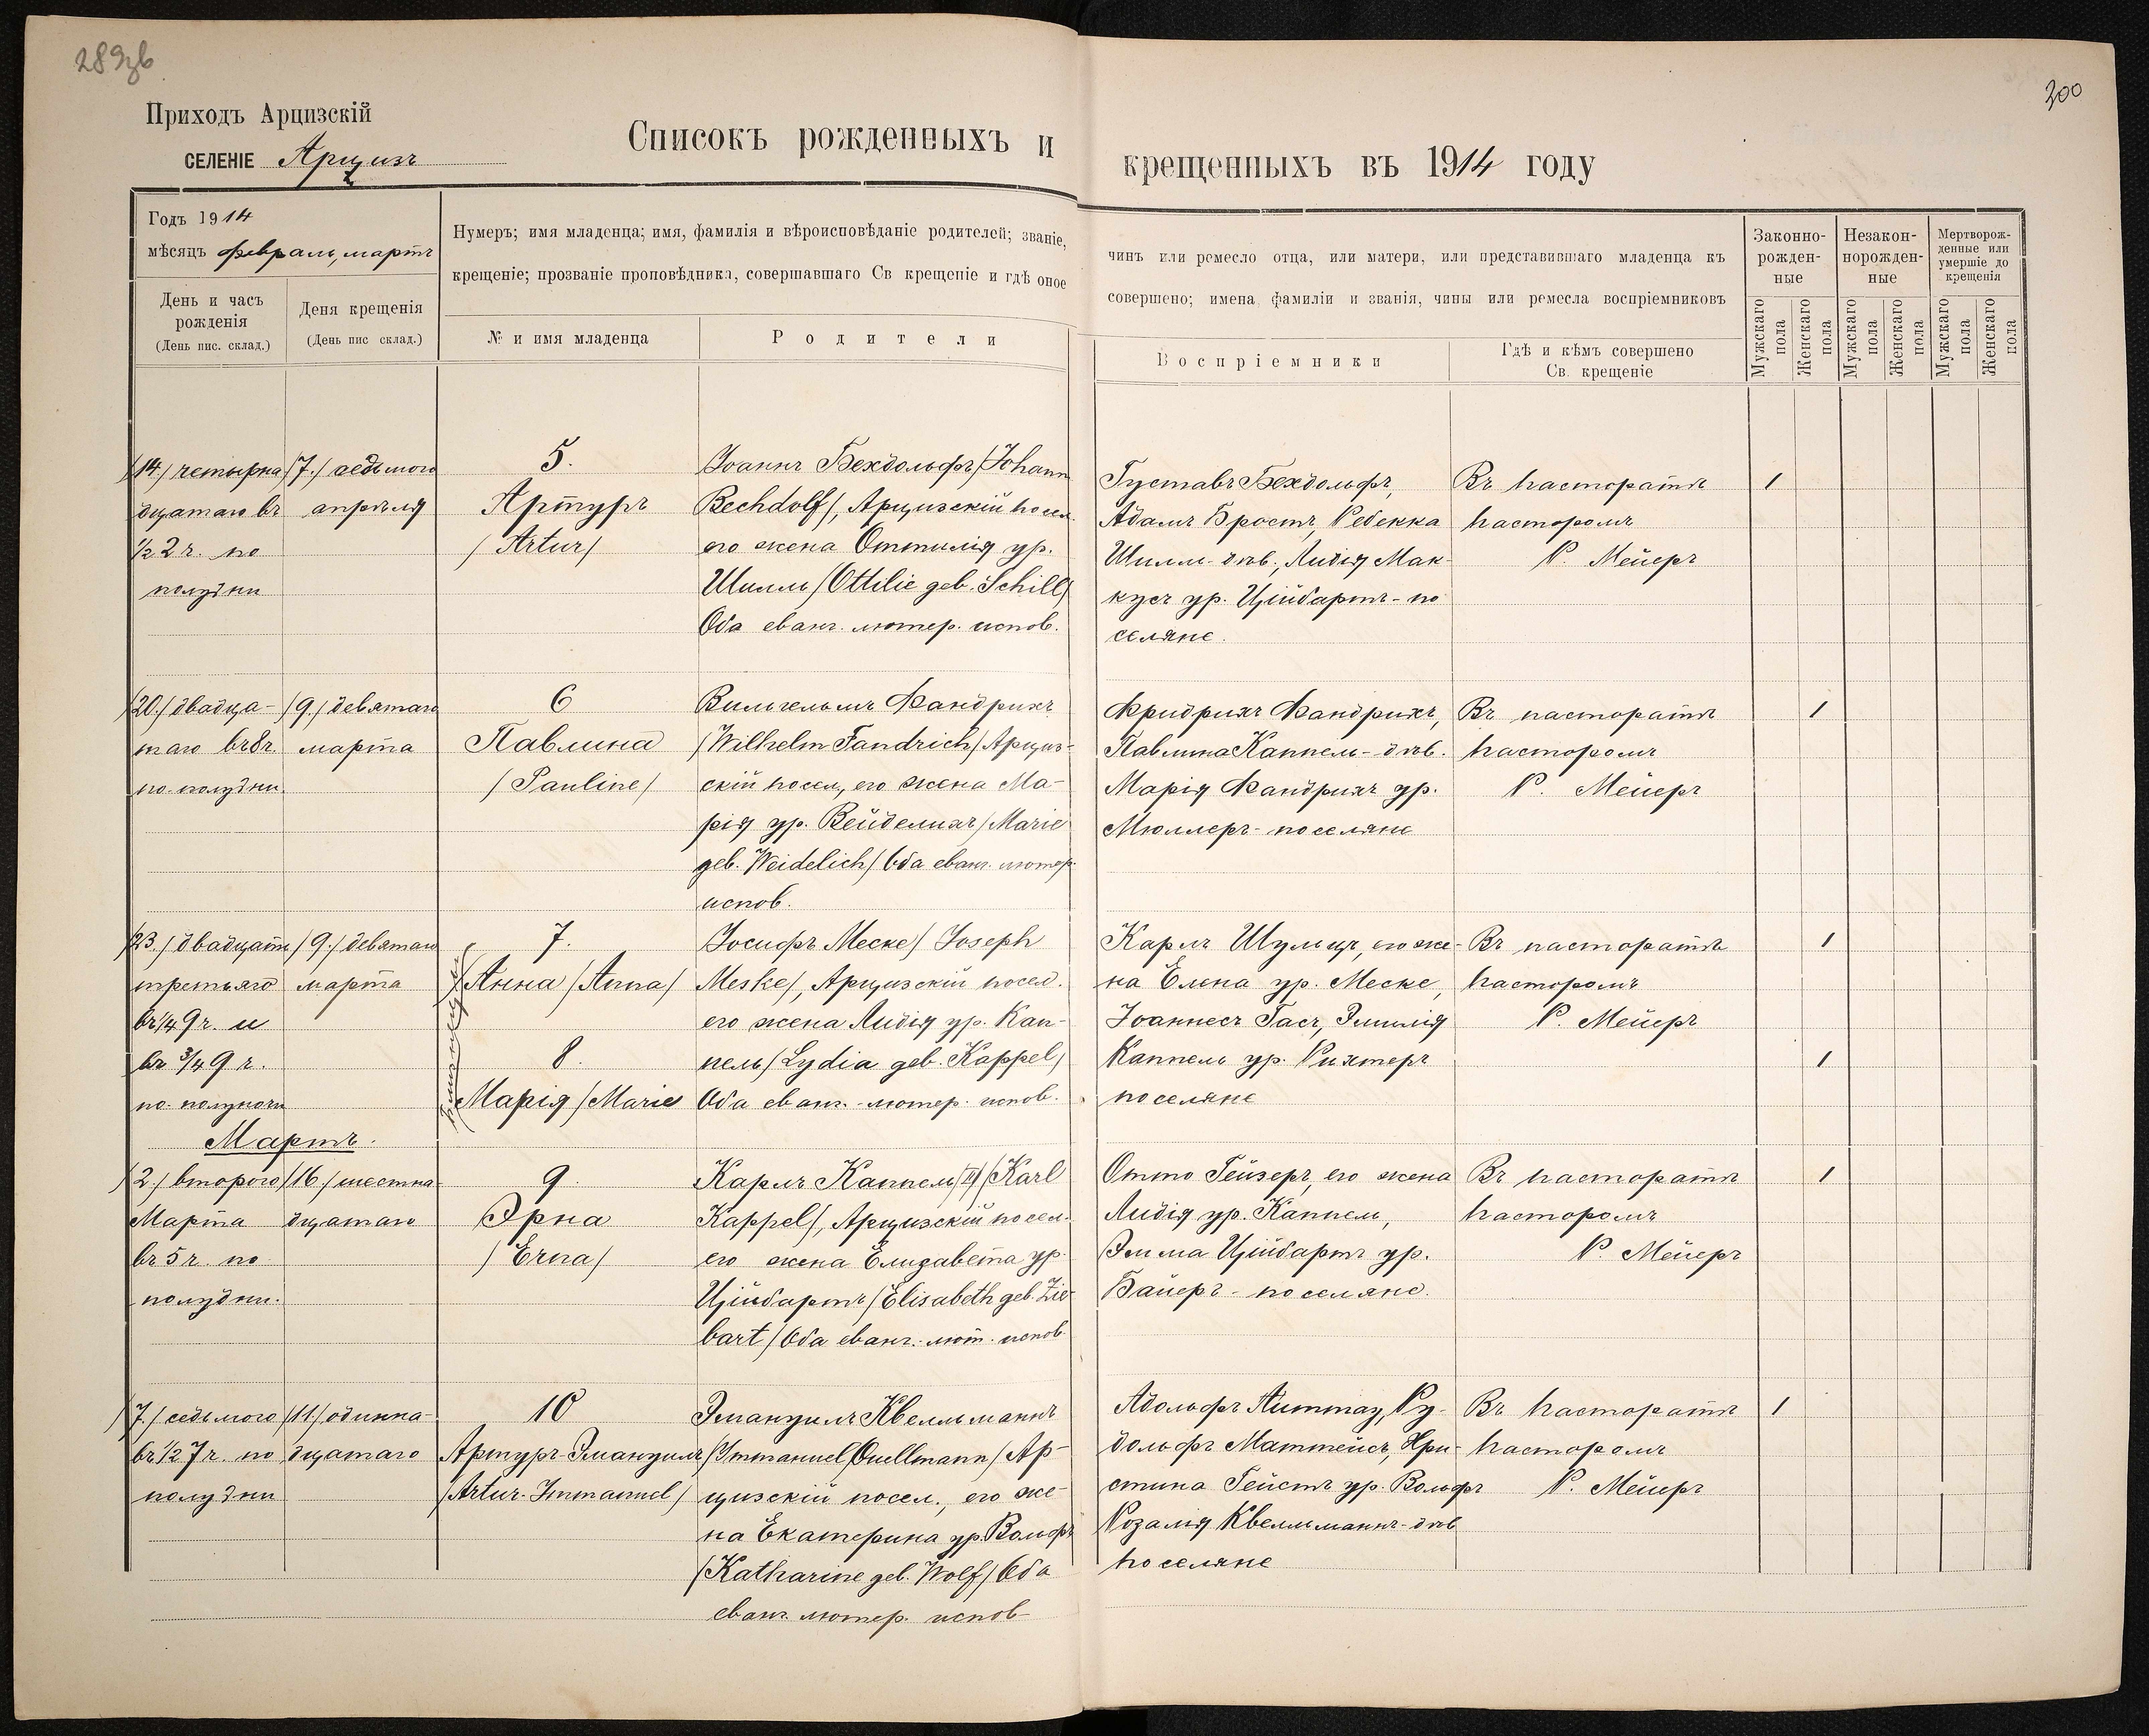 300
Приходъ Арцизскій
СЕЛЕНІЕ Арцизъ
Списокъ рожденныхъ и
крещенныхъ въ 1914 году
Годъ 1914
мѣсяцъ февраль, мартъ
Нумеръ; имя младенца; имя, фамилія и вѣроисповѣданіе родителей; званіе,
крещеніе; прозваніе проповѣдника, совершавшаго Св крещеніе и гдѣ оное
чинъ или ремесло отца, или матери, или представившаго младенца къ
совершено; имена фамиліи и званія, чины или ремесла воспріемниковъ
День и часъ
рожденія
(День пис. склад.)
Деня крещенія
(День пис склад.)
№ и имя младенца
Родители
Воспріемники
Гдѣ и кѣмъ совершено
Св. крещеніе
Законно-
рожден-
ные
Незакон-
норожден-
ные
Мертворож-
денные или
умершіе до
крещенія
Мужскаго
пола
Женскаго
пола
Мужскаго
пола
Женскаго
пола
Мужскаго
пола
Женскаго
пола
/14./ четырна
дцатаго въ
½ 2 ч. по
полудни
/7./ седьмого
апрѣля
5.
Артуръ
/Artur/
Іоаннъ Бехдольфъ /Johann
Bechdolf/, Арцизскій посел.
его жена Оттилія ур.
Шилль /Ottilie geb. Schill/
Оба еванг. лютер. испов.
Густавъ Бехдольфъ,
Адамъ Бростъ, Ребекка
Шилль-дѣв., Лидія Мак-
кусъ ур. Цийбартъ - по
селяне.
Въ пасторатѣ
пасторомъ
Р. Мейеръ
1
/20./ двадца-
таго въ 8 ч.
по-полудни
/9./ девятаго
марта
6
Павлина
/Pauline/
Вильгельмъ Фандрихъ
/Wilhelm Fandrich/ Арциз-
скій посел., его жена Ма-
рія ур. Вейделихъ /Marie
geb. Weidelich/ Оба еванг. лютер.
испов.
Фридрихъ Фандрихъ,
Павлина Каппель-дѣв.
Марія Фандрихъ ур.
Мюллеръ - поселяне
Въ пасторатѣ
пасторомъ
Р. Мейеръ
1
/23./ двадцать
третьяго
въ ¼ 9 ч. и
въ ¾ 9 ч.
по-полуночи
/9./ девятаго
марта
7.
Анна /Anna/
8.
Марія /Marie
Іосифъ Меске /Joseph
Meske/, Арцизскій посел.
его жена Лидія ур. Кап-
пель /Lydia geb. Kappel/
Оба еванг.-лютер. испов.
Карлъ Шульцъ, его же-
на Елена ур. Меске,
Іоаннесъ Гасъ, Эмилія
Каппель ур. Рихтеръ
поселяне
Въ пасторатѣ
пасторомъ
Р. Мейеръ
1
1
Мартъ.
/2./ второго
Марта
въ 5 ч. по
полудни.
/16./ шестна
дцатаго
9.
Эрна
/Erna/
Карлъ Каппель /II/ /Karl
Kappel/, Арцизскій посел.
его жена Елизавета ур.
Цийбартъ /Elisabeth geb. Zie-
bart/ Оба еванг.-лют. испов.
Отто Гейзеръ, его жена
Лидія ур. Каппель,
Эмма Цийбартъ ур.
Байеръ - поселяне.
Въ пасторатѣ
пасторомъ
Р. Мейеръ
1
/7./ седьмого
въ ½ 7 ч. по
полудни
/11./ одинна-
дцатаго
10
Артуръ-Эмануилъ
/Artur-Immanuel/
Эмануилъ Квелльманнъ
/Immanuel Quellmann/ Ар-
цизскій посел., его же-
на Екатерина ур. Вольфъ
/Katharine geb. Wolf/ Оба
еванг. лютер. испов
Адольфъ Литтау, Ру-
дольфъ Маттейсъ, Хри-
стина Гейстъ ур. Вольфъ
Розалія Квелльманнъ-дѣв
поселяне
Въ пасторатѣ
пасторомъ
Р. Мейеръ
1